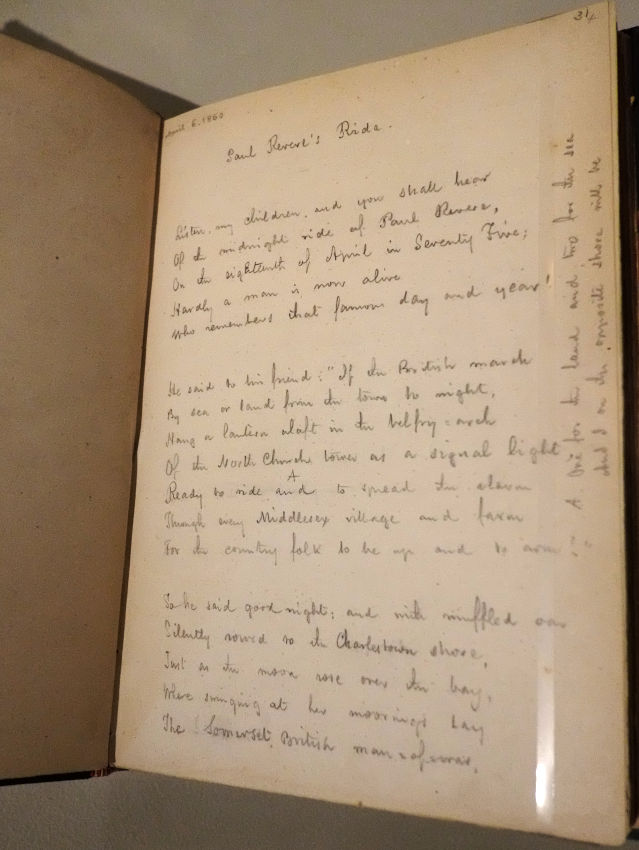 31
April 6. 1860
Paul Revere's Ride.
Listen, my children, and you shall hear
Of the midnight ride of Paul Revere,
On the eighteenth of April in Seventy Five;
Hardly a man is now alive
Who remembers that famous day and year
He said to his friend: "If the British march
By sea or land from the town to night,
Hang a lantern aloft in the belfry-arch
Of the North Church tower as a signal light
A
Ready to ride and to spread the alarm
Through every Middlesex village and farm
For the country folk to be up and to arm."
So he said good night; and with muffled oar
Silently rowed to the Charlestown shore,
Just as the moon rose over the bay,
Where swinging at her moorings lay
The Somerset, British man-of-war,
A. One for the land and two for the sea
And I on the opposite shore will be